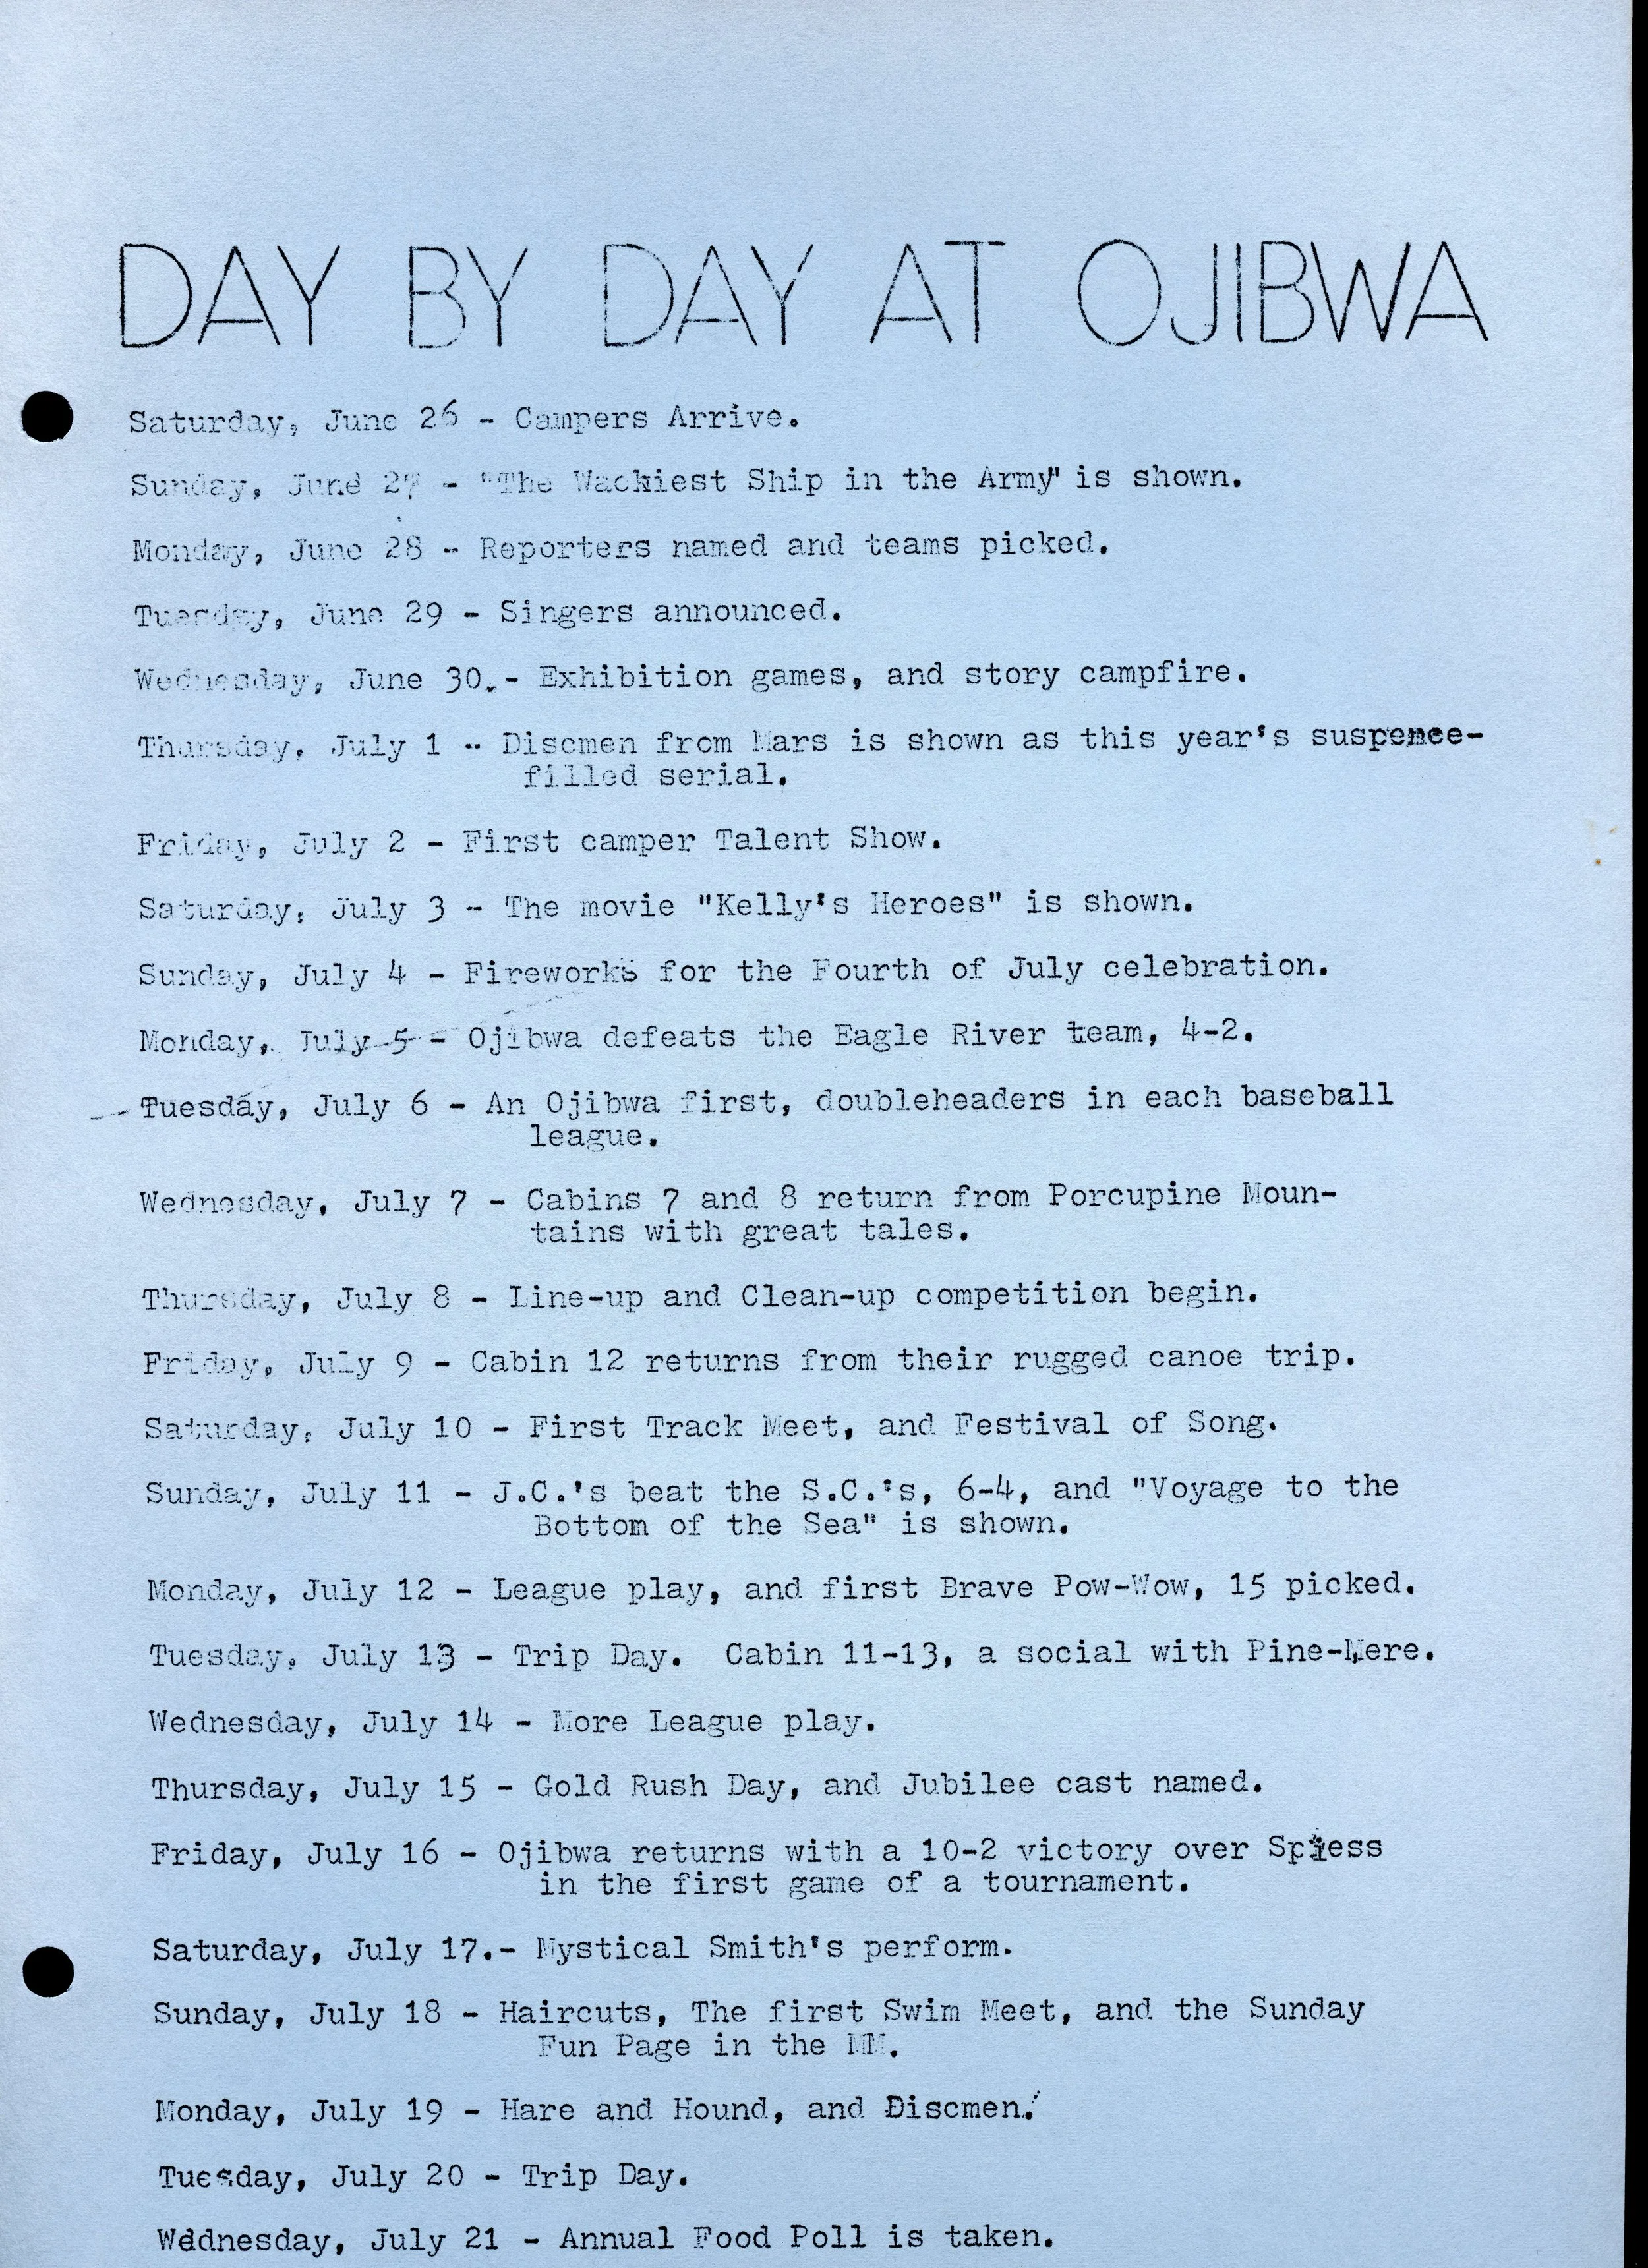 DAY BY DAY AT OJIBWA
Saturday, June 26 - Campers Arrive.
Sunday, June 27 - "The Wackiest Ship in the Army" is shown.
Monday, June 28 - Reporters named and teams picked.
Tuesday, June 29 - Singers announced.
Wednesday, June 30.- Exhibition games, and story campfire.
Thursday, July 1 - Discmen from Mars is shown as this year's suspence-
filled serial.
Friday, July 2 - First camper Talent Show.
Saturday, July 3 - The movie "Kelly's Heroes" is shown.
Sunday, July 4 - Fireworks for the Fourth of July celebration.
Monday, July 5 - Ojibwa defeats the Eagle River team, 4-2.
Tuesday, July 6 - An Ojibwa first, doubleheaders in each baseball
league.
Wednesday, July 7 - Cabins 7 and 8 return from Porcupine Moun-
tains with great tales.
Thursday, July 8 - Line-up and Clean-up competition begin.
Friday, July 9 - Cabin 12 returns from their rugged canoe trip.
Saturday, July 10 - First Track Meet, and Festival of Song.
Sunday, July 11 - J.C.'s beat the S.C.'s, 6-4, and "Voyage to the
Bottom of the Sea" is shown.
Monday, July 12 - League play, and first Brave Pow-Wow, 15 picked.
Tuesday, July 13 - Trip Day. Cabin 11-13, a social with Pine-Mere.
Wednesday, July 14 - More League play.
Thursday, July 15 - Gold Rush Day, and Jubilee cast named.
Friday, July 16 - Ojibwa returns with a 10-2 victory over Spiess
in the first game of a tournament.
Saturday, July 17.- Mystical Smith's perform.
Sunday, July 18 - Haircuts, The first Swim Meet, and the Sunday
Fun Page in the MM.
Monday, July 19 - Hare and Hound, and Discmen.
Tuesday, July 20 - Trip Day.
Wednesday, July 21 - Annual Food Poll is taken.